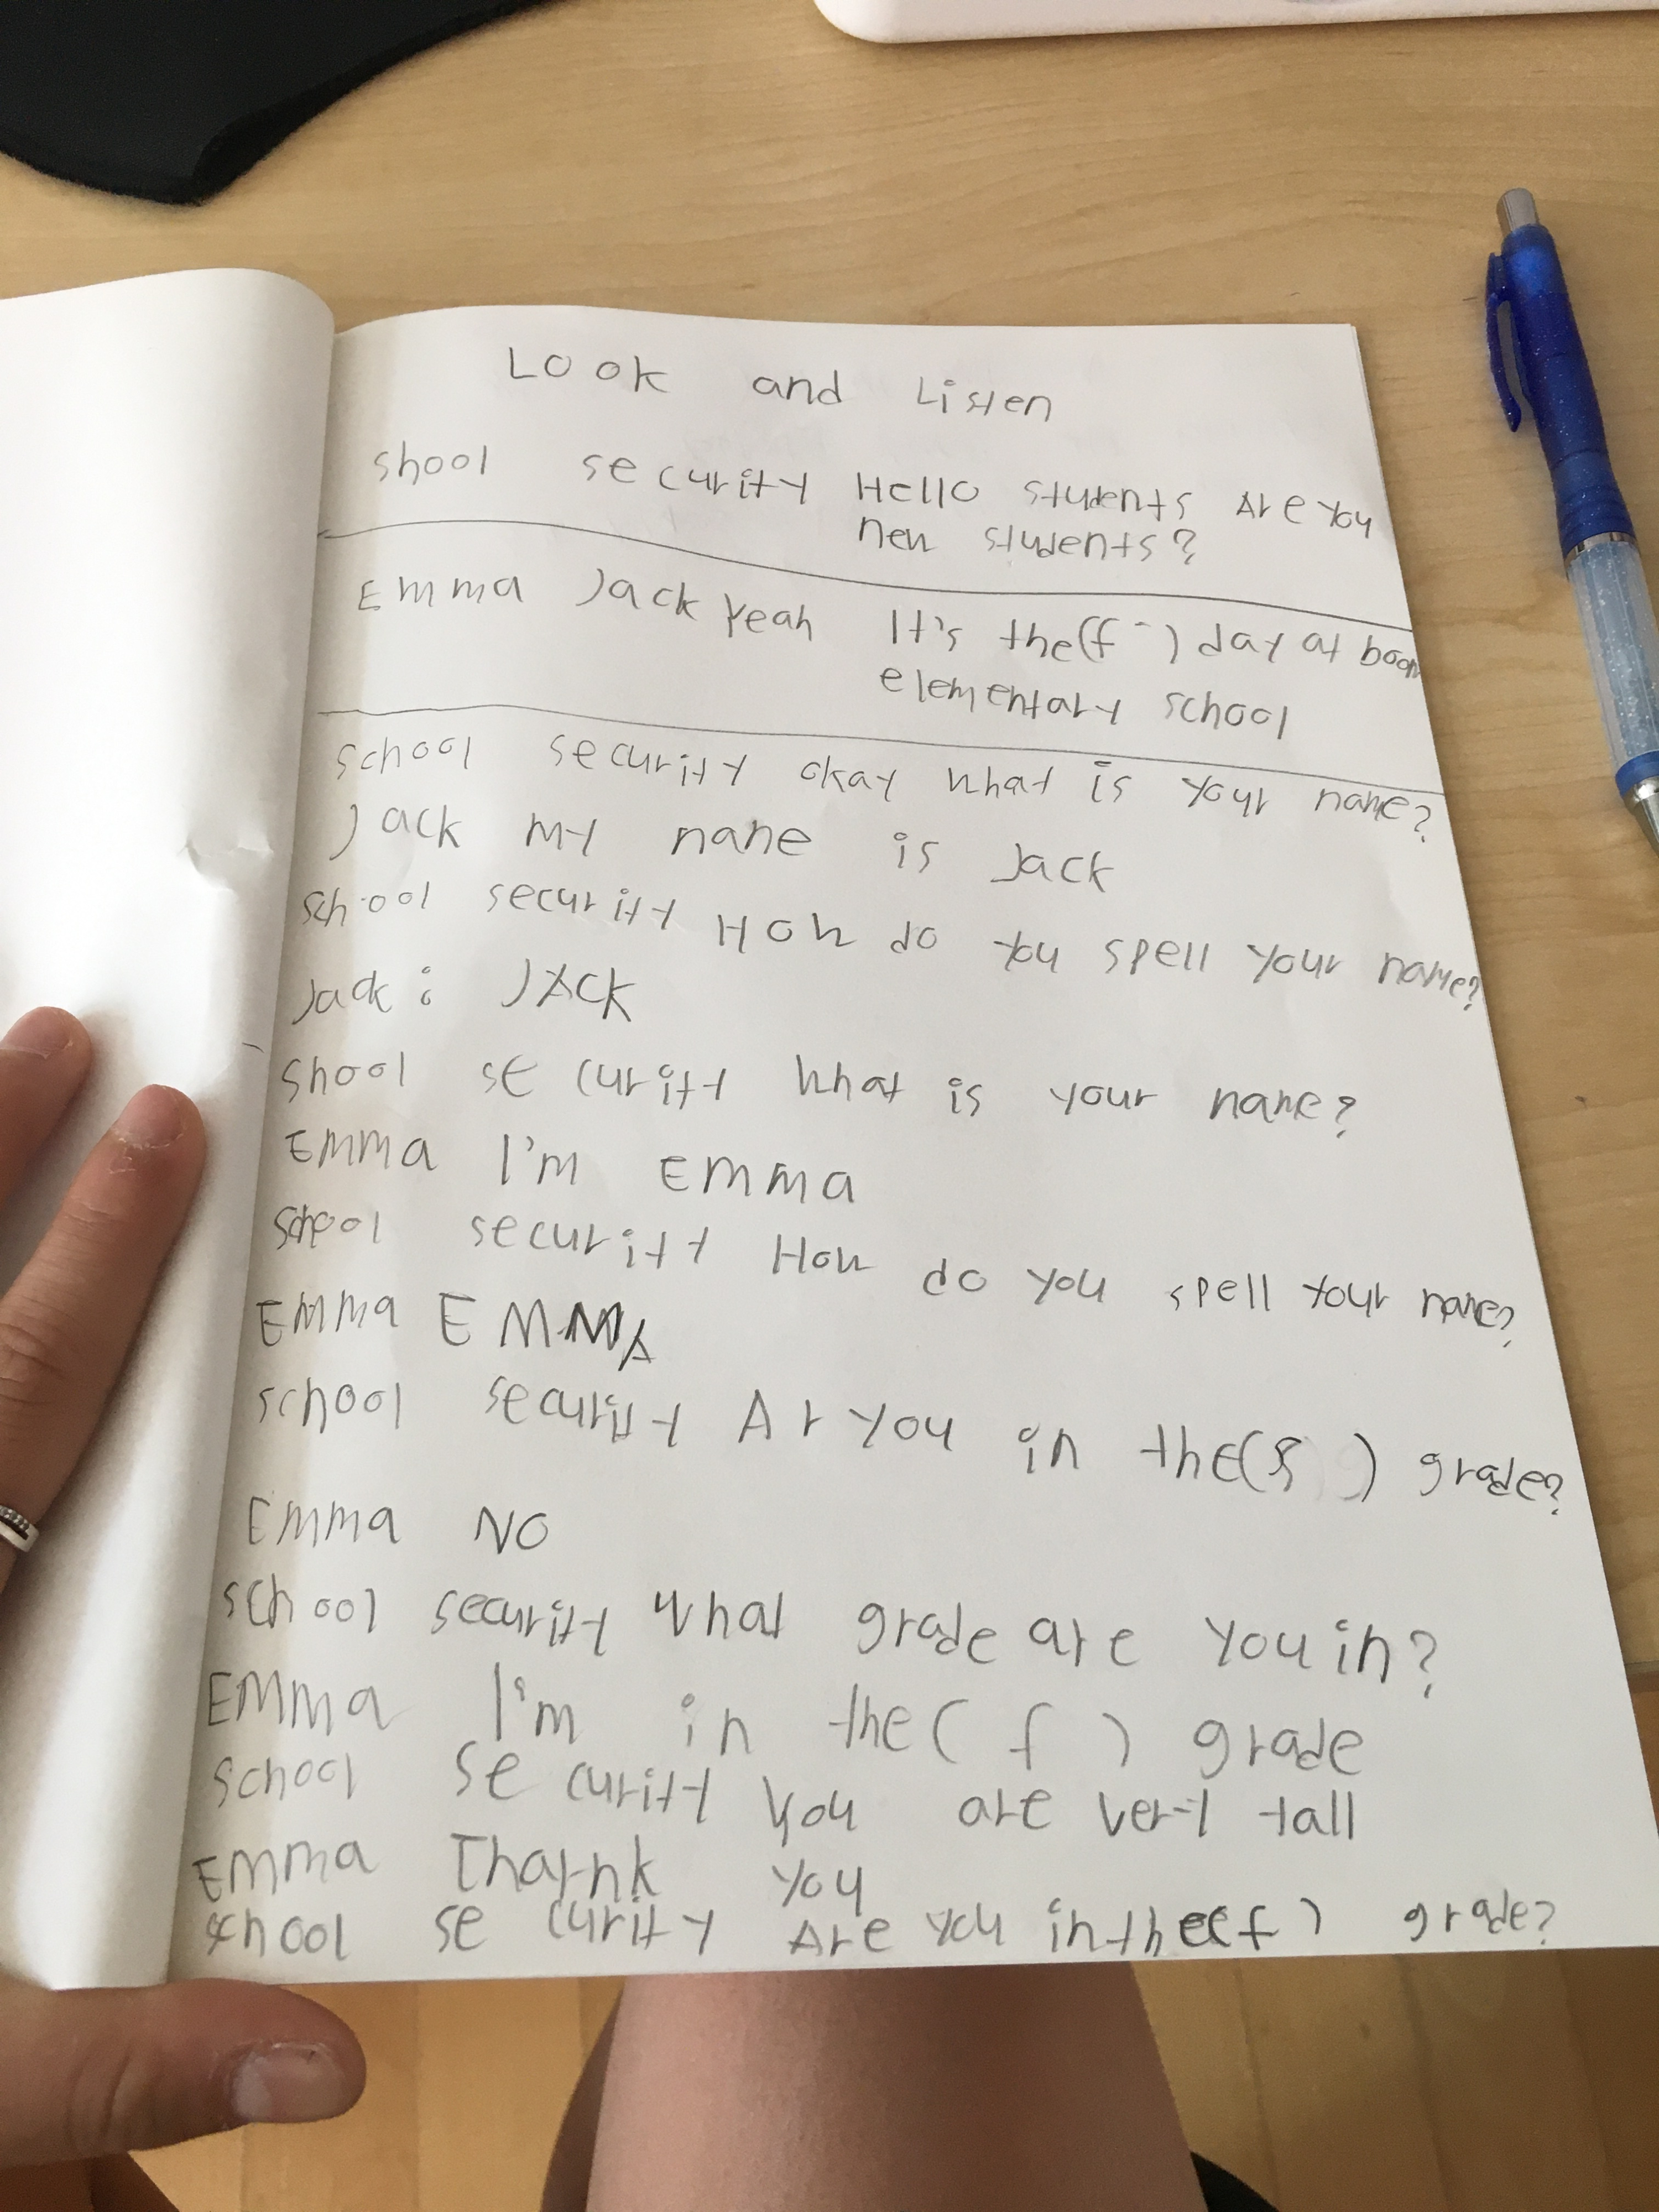 Look and Listen
shool security Hello students Are you
new students?
Emma Jack Yeah It's the(f ) day at boom
elementary school
school security okay what is your name?
Jack my name is Jack
school security How do you spell your name?
Jack: JACK
shool security what is your name?
Emma I'm Emma
school security How do you spell your name?
Emma EMMA
school security Ar you in the(s ) grade?
Emma NO
school security what grade are you in?
Emma I'm in the( f ) grade
school security you are very tall
Emma Thank you
school security Are you in the(f ) grade?